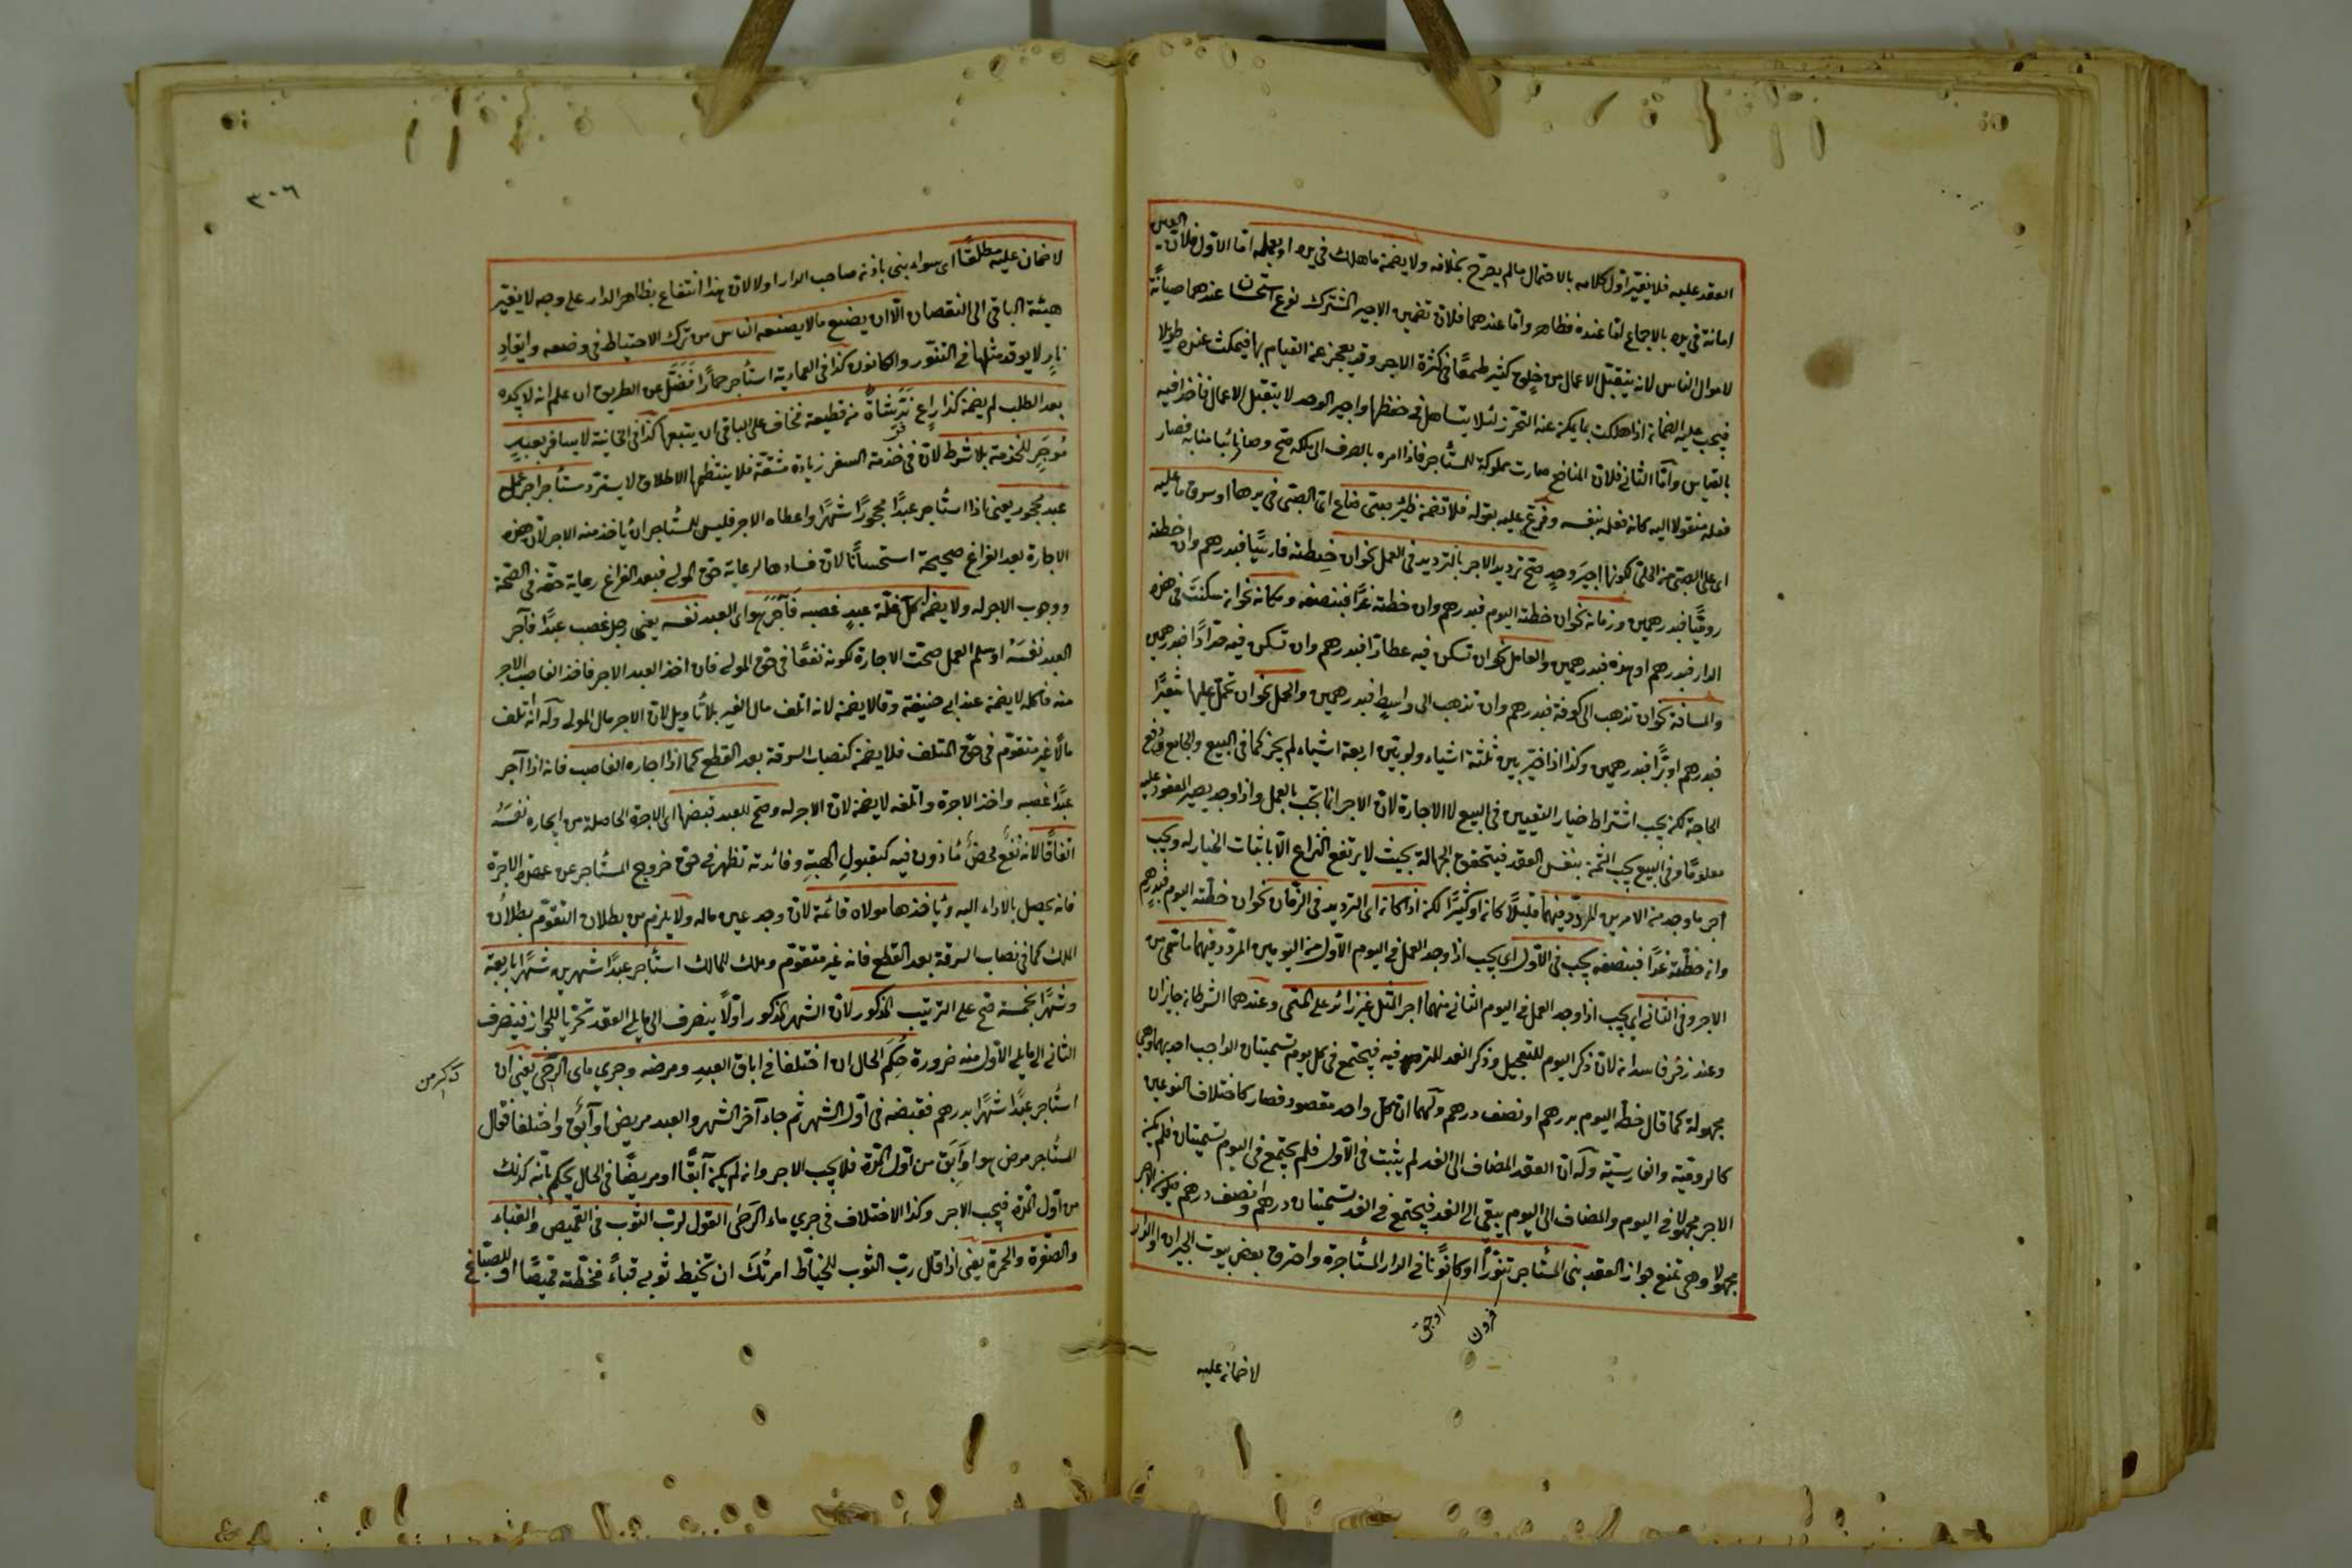 العقد عليه فلا يغير اول كلامه بالاحتمال ما لم يصرح بخلافه ولا يضمن ما هلك في يده او بعمله اما الاول فلان العين
امانة في يده بالاجماع اما عنده فظاهر واما عندهما فلان تضمين الاجير المشترك نوع استحسان عندهما صيانة
لاموال الناس لانه يتقبل الاعمال من خلق كثير طمعا في كثرة الاجر وقد يعجز عن القيام بها فيمكث عنده طويلا
فيجب عليه الضمان اذا هلكت بما يمكن عنه التحرز لئلا يتساهل في حفظها واجير الوحد لا يتقبل الاعمال فاخذا فيه
بالقياس واما الثاني فلان المنافع صارت مملوكة للمستأجر فاذا امره بالصرف الى ملكه صح وصار نائبا منابه فصار
فعله منقولا اليه كانه فعله بنفسه وفرع عليه بقوله فلا تضمن ظئر صبي ضاع اي الصبي في يدها او سرق ما عليه
اي على الصبي من الحلي لكونها اجير وحد صح ترديد الاجر بالترديد في العمل نحو ان خطته فارسيا فبدرهم وان خطته
روميا فبدرهمين وزمانه نحو ان خطته اليوم فبدرهم وان خطته غدا فبنصفه ومكانه نحو ان سكنت في هذه
الدار فبدرهم او هذه فبدرهمين والعامل نحو ان تسكن فيه عطارا فبدرهم وان تسكن فيه حدادا فبدرهمين
والمسافة نحو ان تذهب الى كوفة فبدرهم وان تذهب الى واسط فبدرهمين والحمل نحو ان تحمل عليها شعيرا
فبدرهم او برا فبدرهمين وكذا اذا خير بين ثلثة اشياء ولو بين اربعة اشياء لم يجز كما في البيع والجامع دفع
الحاجة لكن يجب اشتراط خيار التعيين في البيع لا الاجارة لان الاجر انما تجب بالعمل واذا وجد يصير المعقود عليه
معلوما وفي البيع يجب الثمن بنفس العقد فيتحقق الجهالة بحيث لا يرتفع النزاع الا باثبات الخيار له ويجب
اجر ما وجد من الامرين المردد فيهما قليلا كان او كثيرا لكن اذا كان اي الترديد في الزمان نحو ان خطته اليوم فبدرهم
وان خطته غدا فبنصفه يجب في الاول اي يجب اذا وجد العمل في اليوم الاول من اليومين المردد فيهما ما سمى من
الاجر وفي الثاني اي يجب اذا وجد العمل في اليوم الثاني منهما اجر المثل غير زائد على المسمى وعندهما الشرطان جائزان
وعند زفر فاسدان لان ذكر اليوم للتعجيل وذكر الغد للترفيه فيجتمع في كل يوم تسميتان الواجب احديهما وهي
مجهولة كما قال خطه اليوم بدرهم او نصف درهم ولهما ان كل واحد مقصود فصار كاختلاف النوعين
كالرومية والفارسية وله ان العقد المضاف الى الغد لم يثبت في الاول فلم يجتمع في اليوم تسميتان فلم يكن
الاجر مجهولا في اليوم والمضاف الى اليوم يبقى الى الغد فيجتمع في الغد تسميتان درهم ونصف درهم فيكون الاجر
مجهولا وهي تمنع جواز العقد بنى المستأجر تنورا او كانونا في الدار المستأجرة واحترق بعض بيوت الجيران او الدار
فرون
اوجق
لا ضمان عليه
٣٠٦
لا ضمان عليه مطلقا اي سواء بنى باذنه صاحب الدار او لا لان هذا انتفاع بظاهر الدار على وجه لا يغير
هيئة الباقي الى النقصان الا ان يصنع ما لا يصنعه الناس من ترك الاحتياط في وضعه وايقاد
نار لا يوقد مثلها في التنور والكانون كذا في العمادية استأجر حمارا فضل عن الطريق ان علم انه لا يجده
بعد الطلب لم يضمن كذا راع ند شاة من قطيعه فخاف على الباقي ان يتبعها كذا في الخانية لا يسافر بعبد
موجر للخدمة بلا شرط لان في خدمة السفر زيادة مشقة فلا ينتظمها الاطلاق لا يسترد مستأجر اجر عمل
عبد محجور يعني اذا استأجر عبدا محجورا شهرا واعطاه الاجر فليس للمستأجر ان يأخذ منه الاجر لان هذه
الاجارة بعد الفراغ صحيحة استحسانا لان فسادها لرعاية حق المولى فبعد الفراغ رعاية حقه في الصحة
ووجوب الاجر له ولا يضمن آكل غلة عبد غصبه فآجر هو اي العبد نفسه يعني رجل غصب عبدا فآجر
العبد نفسه او سلم العمل صحت الاجارة لكونه نفعا في حق المولى فان اخذ العبد الاجر فاخذ الغاصب الاجر
منه فاكله لا يضمن عند ابي حنيفة وقالا يضمن لانه اتلف مال الغير بلا تأويل لان الاجر مال المولى وله انه اتلف
مالا غير متقوم في حق المتلف فلا يضمن كنصاب السرقة بعد القطع كما اذا اجاره الغاصب فانه اذا آجر
عبدا غصبه واخذ الاجرة واتلفه لا يضمن لان الاجر له وصح للعبد قبضها اي الاجرة الحاصلة من ايجاره نفسه
اتفاقا لانه نفع محض مأذون فيه كقبول الهبة وفائدته تظهر في حق خروج المستأجر عن عهدة الاجرة
فانه يحصل بالاداء اليه ويأخذها مولاه قائمة لان وجد عين ماله ولا يلزم من بطلان التقوم بطلان
الملك كما في نصاب السرقة بعد القطع فانه غير متقوم وملك للمالك استأجر عبدا شهرين شهرا باربعة
وشهرا بخمسة صح على الترتيب المذكور لان الشهر المذكور اولا ينصرف الى ما يلي العقد تحريا للجواز فينصرف
الثاني الى ما يلي الاول منه ضرورة حكم الحال ان اختلفا في اباق العبد ومرضه وجري ماء الرحى يعني ان
استأجر عبدا شهرا بدرهم فقبضه في اول الشهر ثم جاء آخر الشهر والعبد مريض او آبق واختلفا فقال
المستأجر مرض هو او ابق من اول المدة فلا يجب الاجر وان لم يكن آبقا او مريضا في الحال يحكم بانه كذلك
من اول المدة فيجب الاجر وكذا الاختلاف في جري ماء الرحى القول لرب الثوب في القميص والقباء
والصفرة والحمرة يعني اذا قال رب الثوب للخياط امرتك ان تخيط ثوبي قباء فخطته قميصا او للصباغ